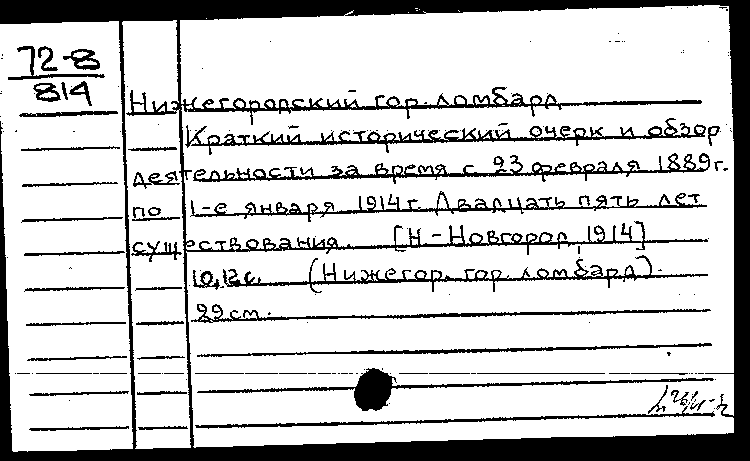 72-8
814
Нижегородский гор. ломбард
Краткий исторический очерк и обзор
деятельности за время с 23 февраля 1889 г.
по 1-е января 1914 г. Двадцать пять лет
существования. [Н.-Новгород, 1914]
10,12 с. (Нижегор. гор. ломбард).
29 см.